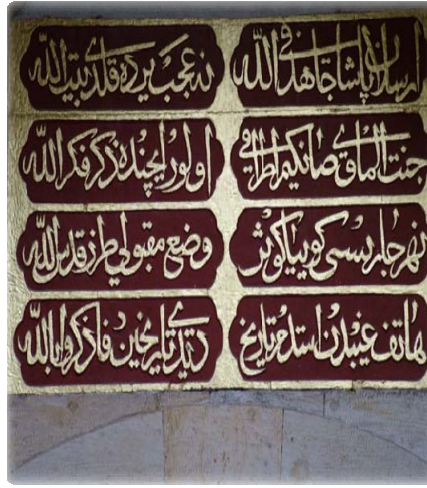 ارسلان پاشا جاهد فى الله نه عجب يرده قلدى بيت الله
جنت الماوى صانكيم اطرافى اولور ايچنده ذكر فكر الله
نهر جاريسى كوييا كوثر وضع مقبولى طرز قدس الله
هاتف غيبدن استدم تاريخ ديدى تاريخين فاذكروا بالله